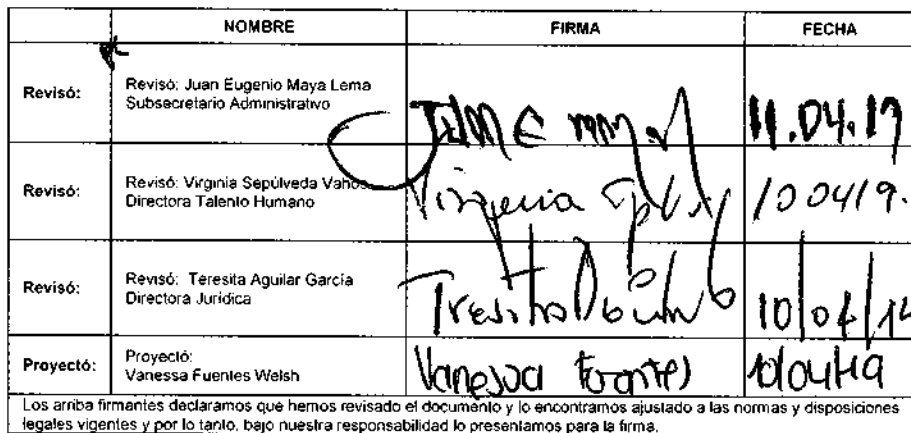 NOMBRE FIRMA FECHA
Revisó: Revisó: Juan Eugenio Maya Lema
Subsecretario Administrativo
11.04.19
Revisó: Revisó: Virginia Sepúlveda Vahos
Directora Talento Humano
Virginia
100419.
Revisó: Revisó: Teresita Aguilar García
Directora Jurídica
10/04/
Proyectó: Proyectó:
Vanessa Fuentes Welsh
Vanessa Fuentes 10/04/19
Los arriba firmantes declaramos que hemos revisado el documento y lo encontramos ajustado a las normas y disposiciones
legales vigentes y por lo tanto, bajo nuestra responsabilidad lo presentamos para la firma.